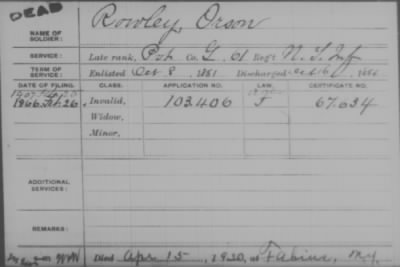 DEAD
Rowley, Orson
NAME OF SOLDIER:
SERVICE: Late rank, Pvt. Co. G, 61 Reg't N.Y. Inf
TERM OF SERVICE: Enlisted Oct 8, 1861 Discharged 1864
DATE OF FILING. CLASS. APPLICATION NO. LAW. CERTIFICATE NO.
1866 Feb. 26, Invalid, 103.406 67.634
Widow,
Minor,
ADDITIONAL SERVICES:
REMARKS:
Died Apr. 15, 1920, at Fabius, N.Y.